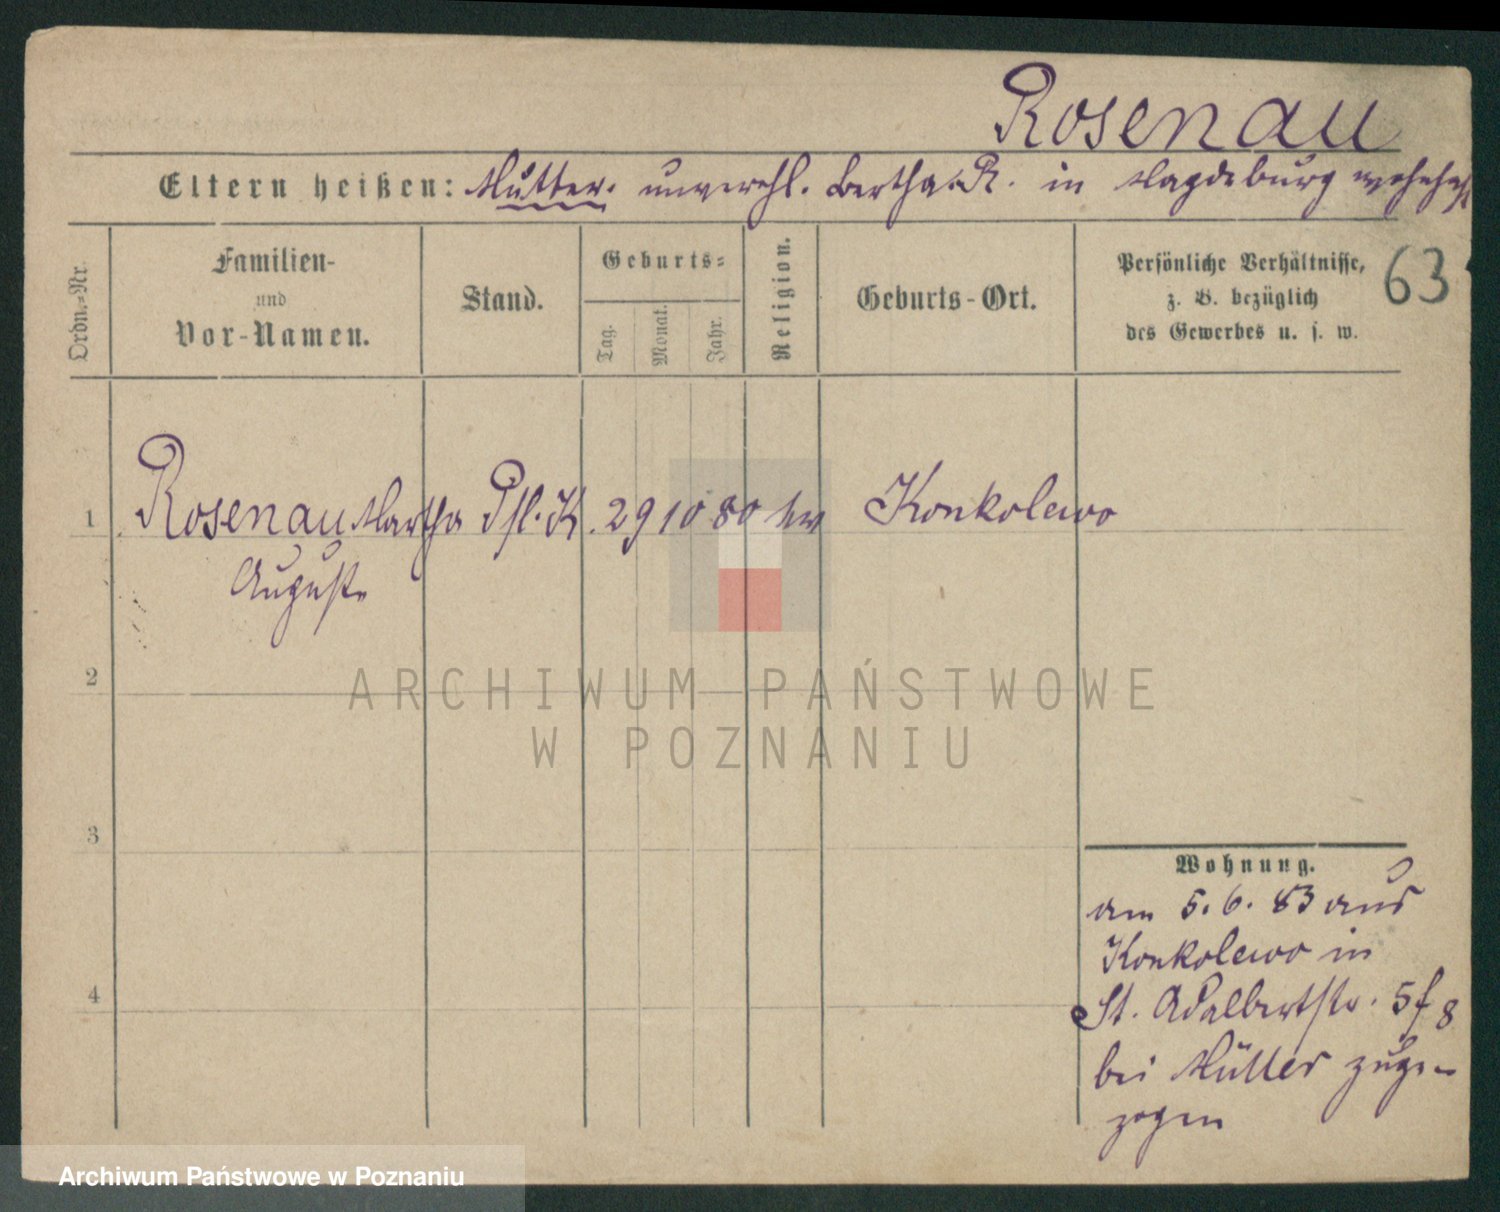 Rosenau
Eltern heißen: Mutter. unverehl. Bertha R. in Magdeburg wohnhaft
Ordn.-Nr.
Familien-
und
Vor-Namen.
Stand.
Geburts-
Tag.
Monat.
Jahr.
Religion.
Geburts-Ort.
Persönliche Verhältnisse,
z. B. bezüglich
des Gewerbes u. s. w.
63
1 Rosenau Martha Pfl. K. 29 10 80 ev Konkolewo
Auguste
2
3
4
Wohnung.
am 5. 6. 83 aus
Konkolewo in
St. Adalbertstr. 5 f 8
bei Müller zuge-
zogen
ARCHIWUM PAŃSTWOWE
W POZNANIU
Archiwum Państwowe w Poznaniu